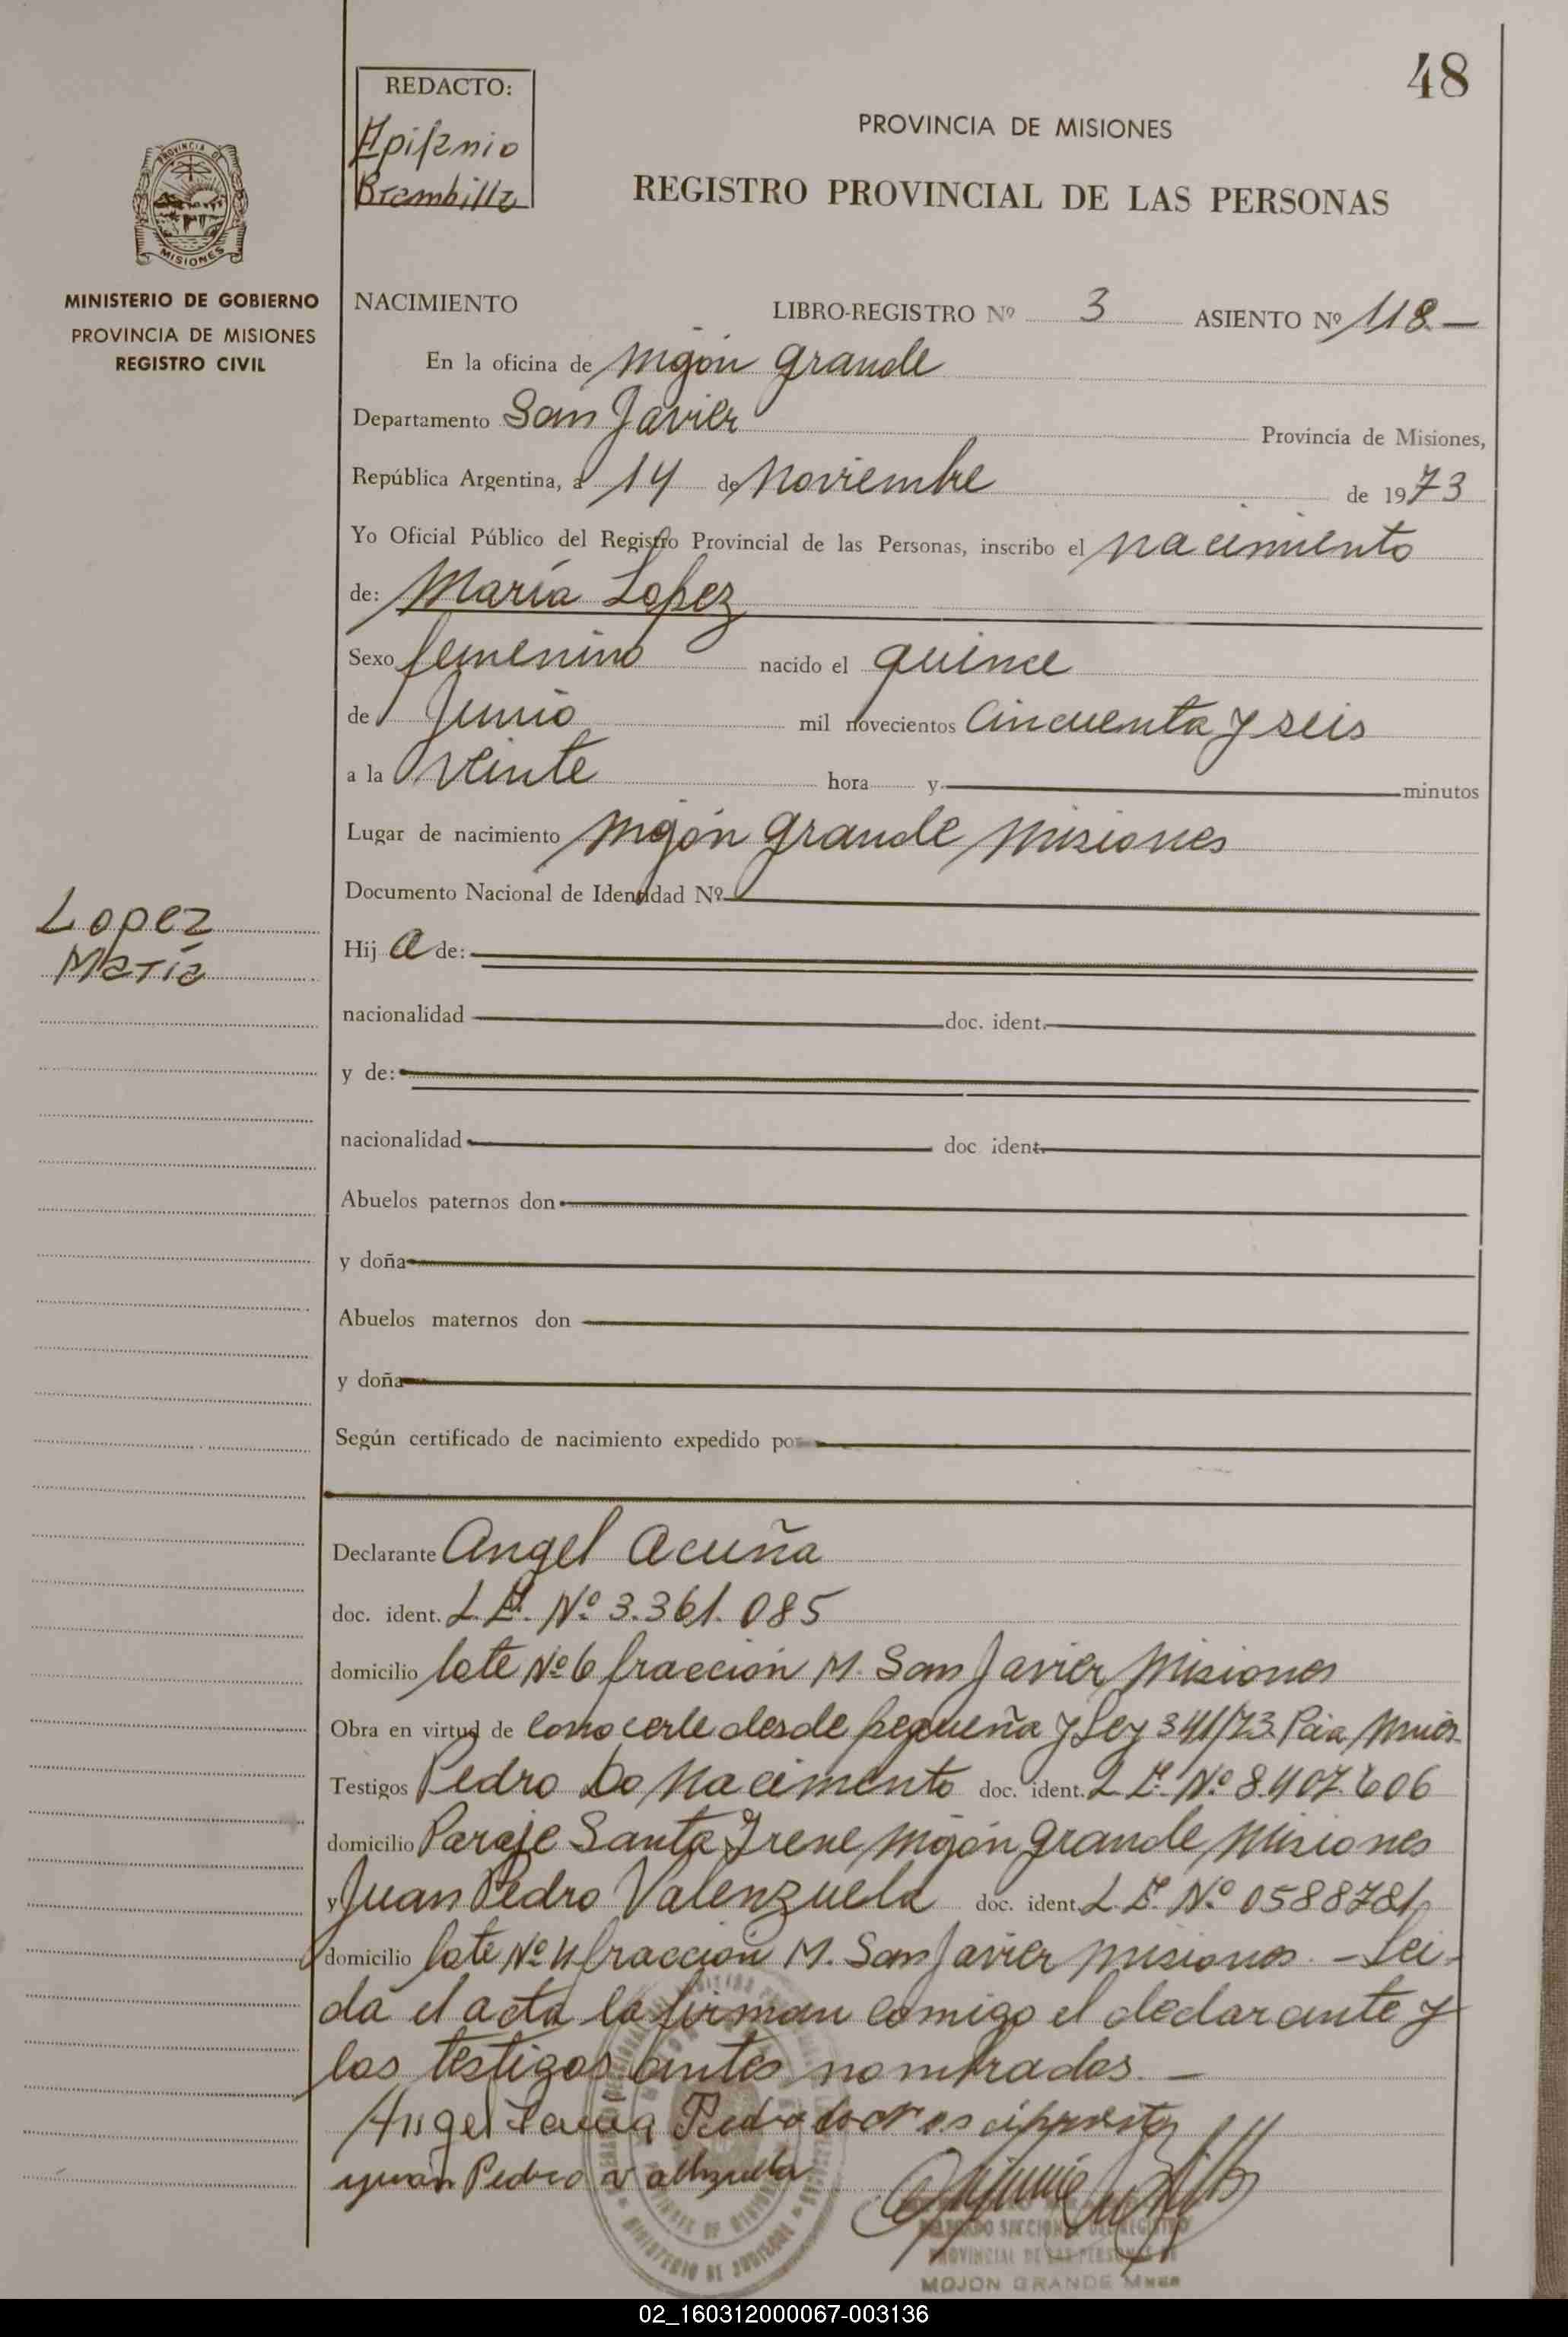 48
REDACTO:
Epifanio
Brambilla
PROVINCIA DE MISIONES
REGISTRO PROVINCIAL DE LAS PERSONAS
PROVINCIA DE
MISIONES
MINISTERIO DE GOBIERNO
PROVINCIA DE MISIONES
REGISTRO CIVIL
NACIMIENTO LIBRO-REGISTRO Nº 3 ASIENTO Nº 118.—
En la oficina de Mojón Grande
Departamento San Javier Provincia de Misiones,
República Argentina, a 14 de Noviembre de 1973
Yo Oficial Público del Registro Provincial de las Personas, inscribo el nacimiento
de: María Lopez
Sexo femenino nacido el quince
de Junio mil novecientos cincuenta y seis
a la veinte hora y minutos
Lugar de nacimiento Mojón Grande Misiones
Documento Nacional de Identidad Nº
Lopez
María
Hij a de:
nacionalidad doc. ident.
y de:
nacionalidad doc ident.
Abuelos paternos don
y doña
Abuelos maternos don
y doña
Según certificado de nacimiento expedido por
Declarante Angel Acuña
doc. ident. L.E. Nº 3.361.085
domicilio lote Nº 6 fracción M. San Javier Misiones
Obra en virtud de conocerle desde pequeña y Ley 341/73
Testigos Pedro Do Nacimento doc. ident. L.E. Nº 8.407.606
domicilio Paraje Santa Irene Mojón Grande Misiones
y Juan Pedro Valenzuela doc. ident. L.E. Nº 0588781
domicilio lote Nº 4 fracción M. San Javier Misiones. — Lei-
da el acta la firman comigo el declarante y
los testigos antes nombrados. —
Angel Acuña Pedro
Juan Pedro Valenzuela
DELEGADO SECCIONAL DEL REGISTRO
PROVINCIAL DE LAS PERSONAS DE
MOJON GRANDE Mnes
02_160312000067-003136